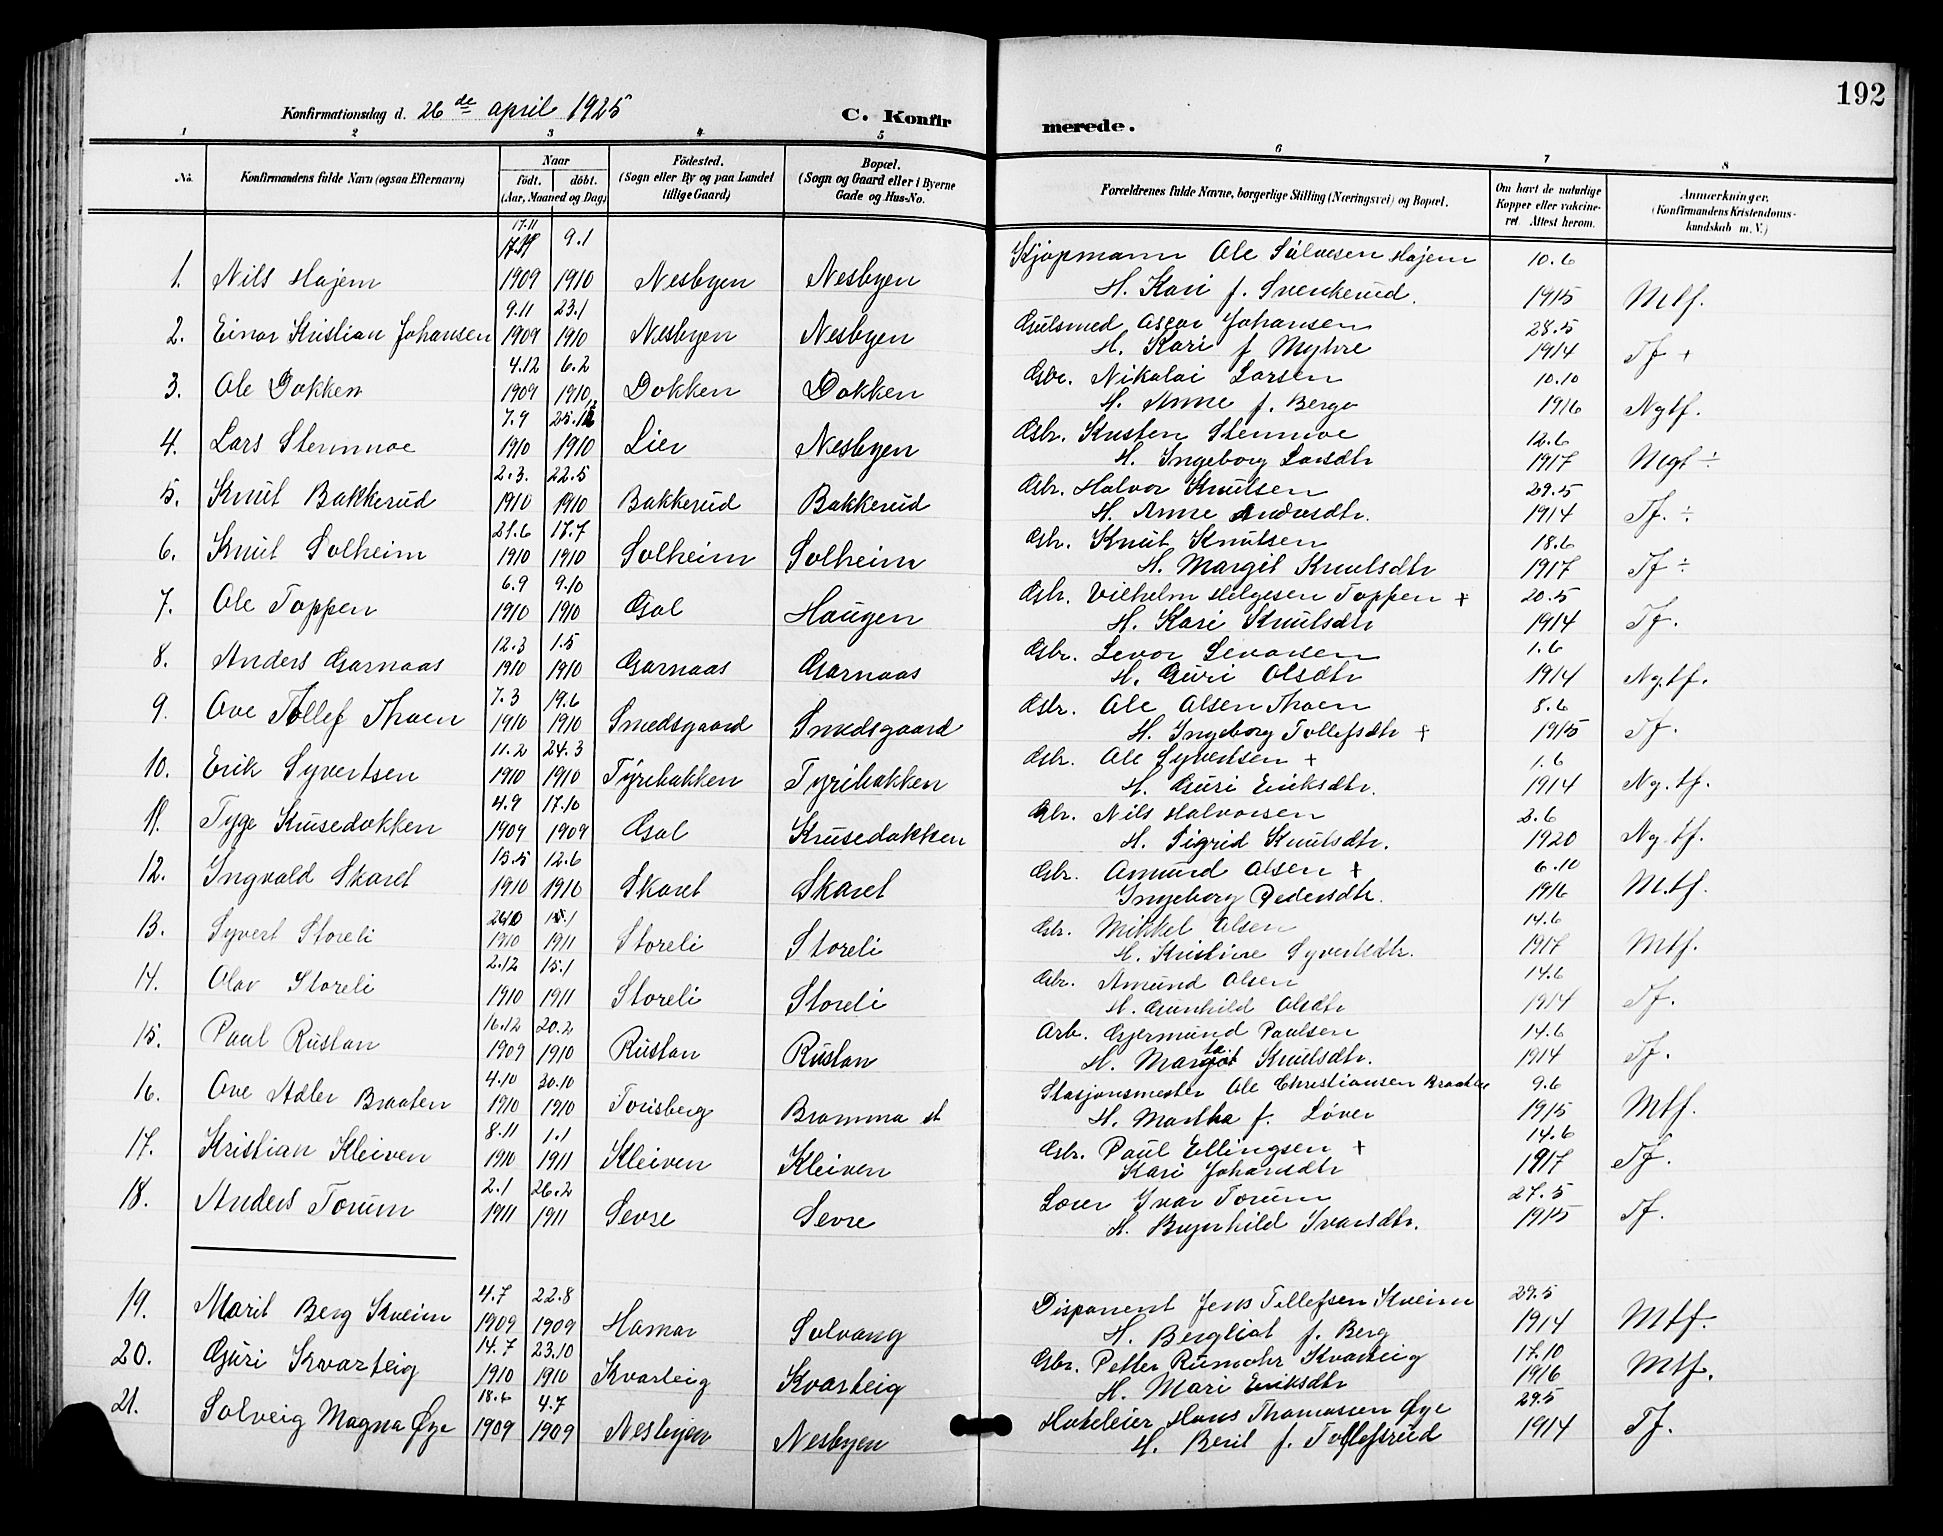 192
Konfirmationsdag d. 26de april 1925 C. Konfirmerede.
1 2 3 4 5 6 7 8
No. Konfirmandens fulde Navn (ogsaa Efternavn) Naar födt. döbt. (Aar, Maaned og Dag) Födested. (Sogn eller By og paa Landet tillige Gaard) Bopæl. (Sogn og Gaard eller i Byerne Gade og Hus-No. Forældrenes fulde Navne, borgerlige Stilling (Næringsvei) og Bopæl. Om havt de naturlige Kopper eller vakcineret. Attest herom. Anmerkninger. (Konfirmandens Kristendomskundskab m. V.)
17.11 9.1 Kjøpmann Ole Sülvesen Hajem 10.6
1. Nils Hajem 1909 1910 Nesbyen Nesbyen H. Kari f. Svenkerud. 1915 Mtf.
9.11 23.1 Gulsmed Oscar Johansen 28.5
2. Einar Kristian Johansen 1909 1910 Nesbyen Nesbyen H. Kari f Myhre 1914 Tf +
4.12 6.2 Gbr. Nikolai Larsen 10.10
3. Ole Dokken 1909 1910 Dokken Dokken H. Anne f. Berge 1916 Ngtf.
7.9 25.12 Gbr. Kristen Stenmoe 12.6
4. Lars Stenmoe 1910 1910 Lier Nesbyen H. Ingeborg Larsdtr 1917 Mgt ÷
2.3. 22.5 Gbr. Halvor Knutsen 29.5
5. Knut Bakkerud 1910 1910 Bakkerud Bakkerud H. Anne Andersdtr. 1914 Tf. ÷
21.6 17.7 Gbr. Knut Knutsen 18.6
6. Knut Solheim 1910 1910 Solheim Solheim H. Margit Knutsdtr 1917 Tf ÷
6.9 9.10 Gbr. Vilhelm Helgesen Toppen + 20.5
7. Ole Toppen 1910 1910 Gol Haugen H. Kari Knutsdtr 1914 Tf.
12.3 1.5 Gbr. Levor Levorsen 1.6
8. Anders Garnaas 1910 1910 Garnaas Garnaas H. Guri Olsdtr 1914 Ng.tf.
7.3 19.6 Gbr. Ole Olsen Thoen 8.6
9. Ove Tollef Thoen 1910 1910 Smedsgaard Smedsgaard H. Ingeborg Tollefsdtr + 1915 Tf.
11.2 24.3 Gbr. Ole Syvertsen + 1.6
10. Erik Syvertsen 1910 1910 Tyribakken Tyribakken H. Guri Eriksdtr. 1914 Ng.tf.
4.9 17.10 Gbr. Nils Halvorsen 2.6
11. Tyge Krusedokken 1909 1909 Gol Krusedokken H. Sigrid Knutsdtr. 1920 Ng.tf.
13.5 12.6 Gbr. Amund Olsen + 6.10
12. Ingvald Skaret 1910 1910 Skaret Skaret Ingeborg Pedersdtr. 1916 M.tf.
26.10 15.1 Gbr. Mikkel Olsen 14.6
13. Syvert Storeli 1910 1911 Storeli Storeli H. Kristine Syvertsdtr. 1917 Mtf.
2.12 15.1 Gbr. Amund Olsen 14.6
14. Olav Storeli 1910 1911 Storeli Storeli H. Gunhild Olsdtr 1914 Tf.
16.12 20.2 Arb. Gjermund Paulsen 14.6
15. Paul Rustan 1909 1910 Rustan Rustan H. Margit Knutsdtr. 1914 Tf.
4.10 30.10 Stasjonsmester Ole Christiansen Braaten 9.6
16. Ove Adler Braaten 1910 1910 Torisberg Bromma st H. Martha f. Løver 1915 Mtf.
8.11 1.1 Gbr. Paul Ellingsen + 14.6
17. Kristian Kleiven 1910 1911 Kleiven Kleiven Kari Johansdtr 1917 Tf.
2.1 26.2 Lærer Ivar Torum 27.5
18. Anders Torum 1911 1911 Sevre Sevre H. Brynhild Ivarsdtr. 1915 Tf.
4.7 22.8 Disponent Jens Tollefsen Kveim 29.5
19. Marit Berg Kveim 1909 1909 Hamar Solvang H. Bergliot f. Berg 1914 Mtf.
14.7 23.10 Gbr. Petter Rumohr Kvarteig 17.10
20. Guri Kvarteig 1910 1910 Kvarteig Kvarteig H. Mari Eriksdtr 1916 Mtf.
18.6 4.7 Hoteleier Hans Thomassen Øye 29.5
21. Solveig Magna Øye 1909 1909 Nesbyen Nesbyen H. Berit f. Tollefsrud 1914 Tf.